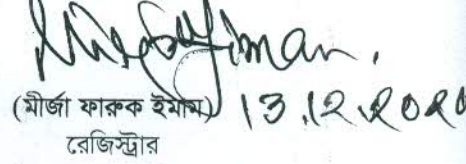 (মীর্জা ফারুক ইমাম) 13.12.2020
রেজিস্ট্রার